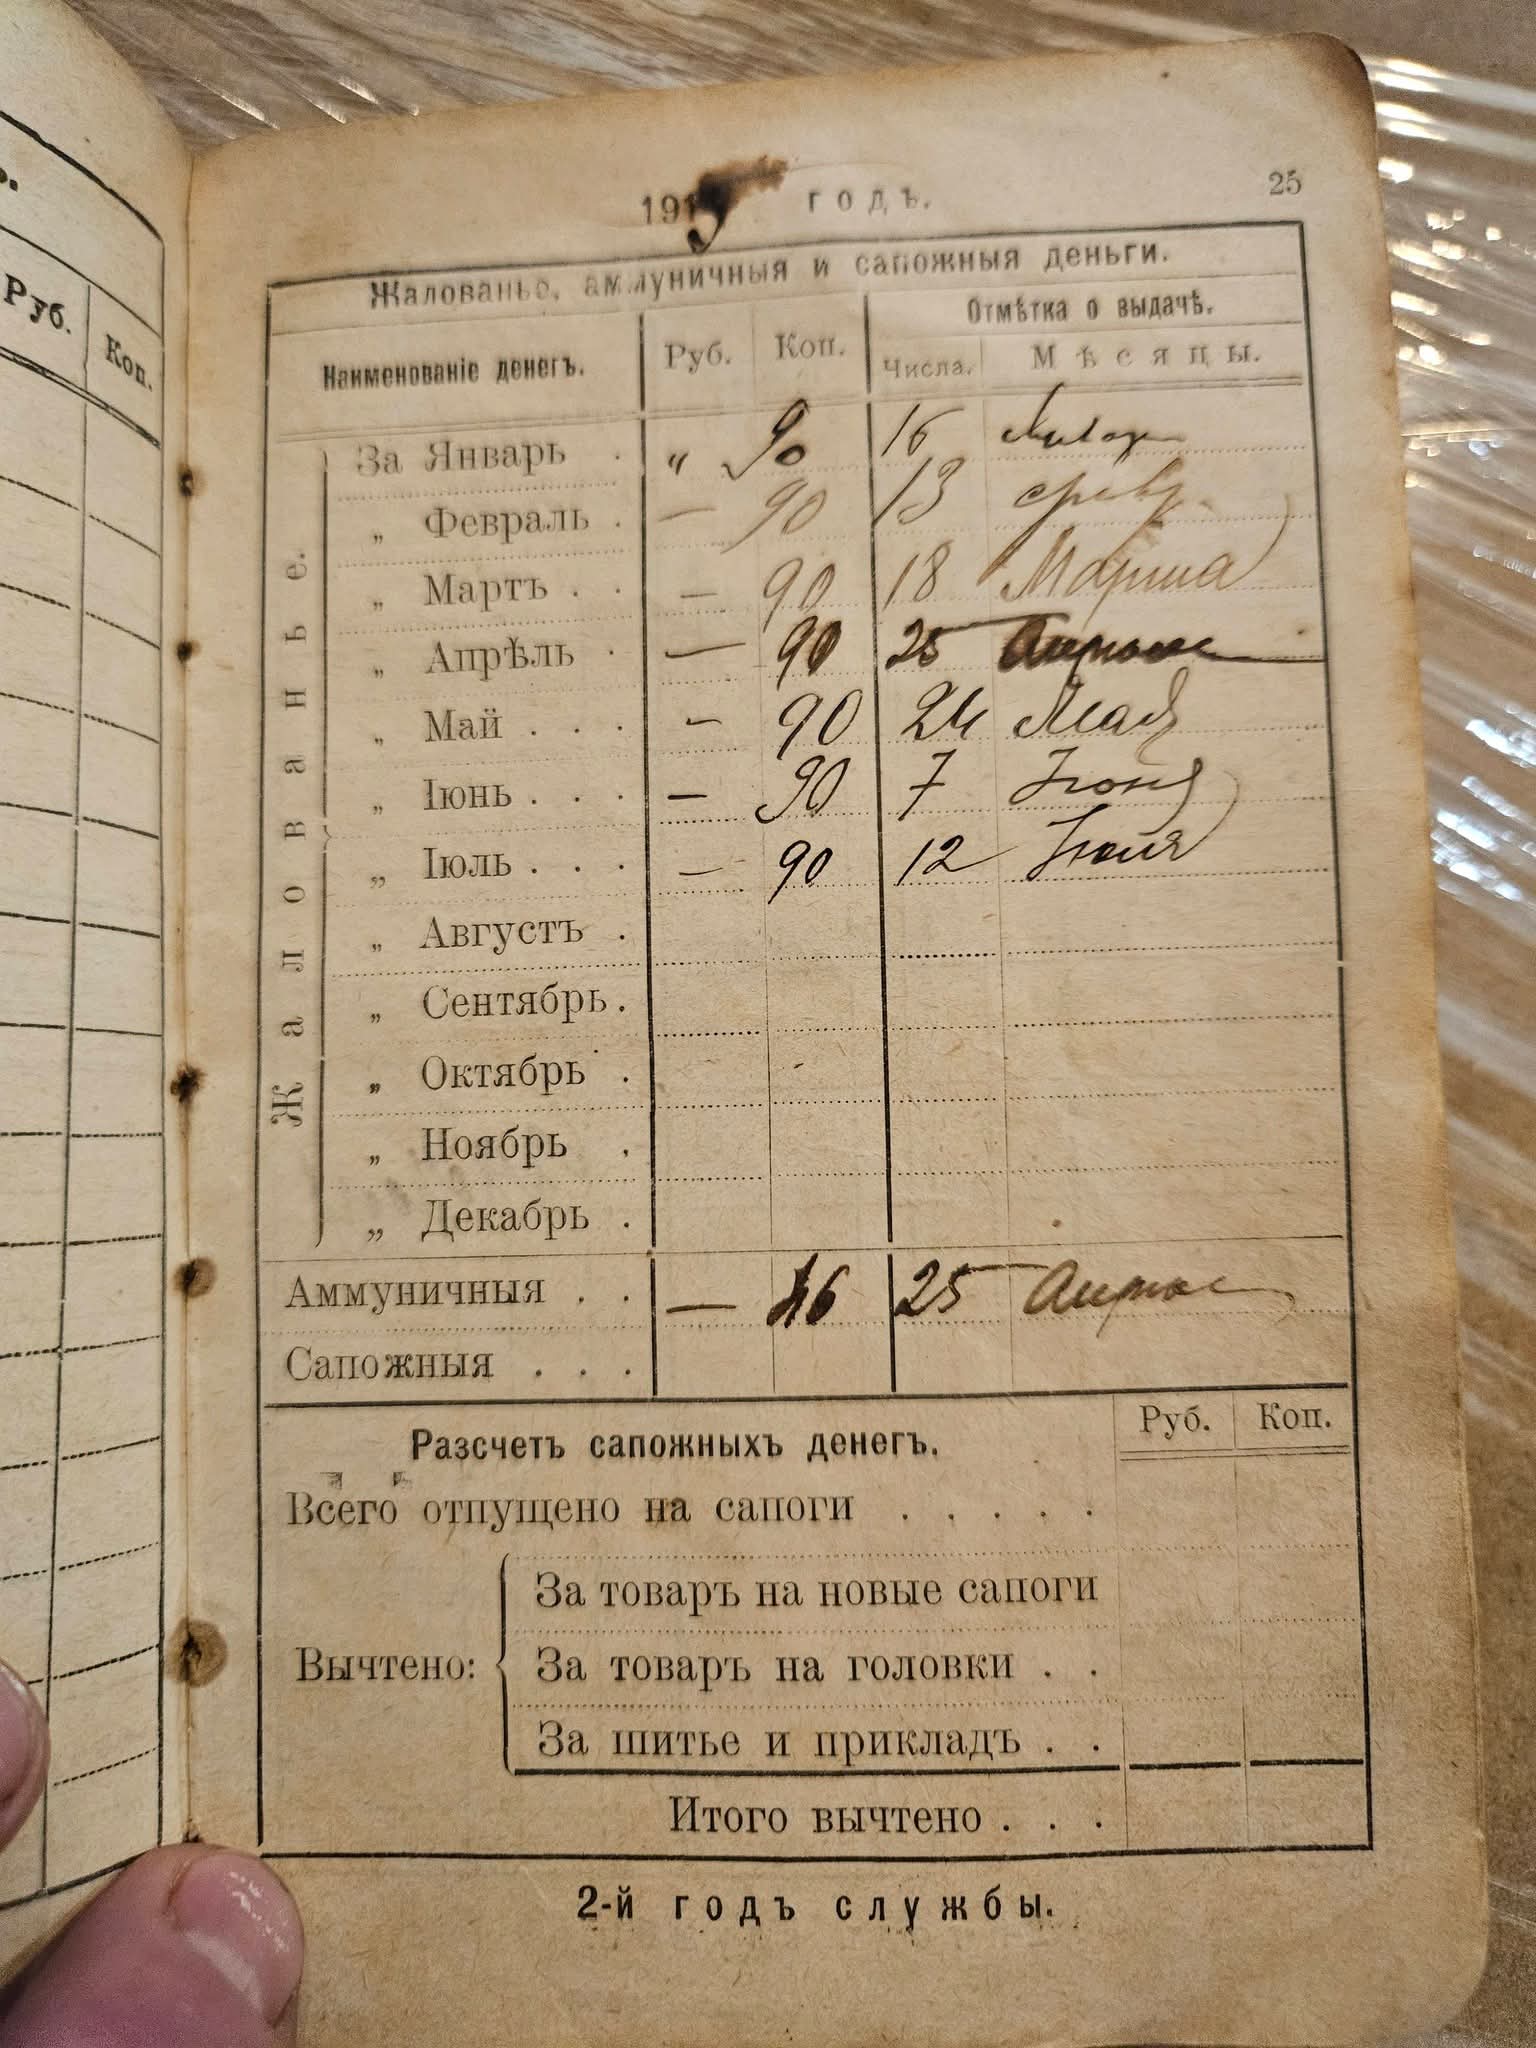 25
191 годъ.
Жалованье, аммуничныя и сапожныя деньги.
Наименованіе денегъ. Руб. Коп. Отмѣтка о выдачѣ.
Числа. Мѣсяцы.
Жалованье.
За Январь . „ 90 16 Января
„ Февраль . — 90 13 февр.
„ Мартъ . . — 90 18 Марта
„ Апрѣль . — 90 25 Апрѣля
„ Май . . . — 90 24 Мая
„ Іюнь . . . — 90 7 Іюня
„ Іюль . . . — 90 12 Іюля
„ Августъ .
„ Сентябрь .
„ Октябрь .
„ Ноябрь .
„ Декабрь .
Аммуничныя . . — 46 25 Апрѣля
Сапожныя . . .
Разсчетъ сапожныхъ денегъ. Руб. Коп.
Всего отпущено на сапоги . . . . .
Вычтено:
За товаръ на новые сапоги
За товаръ на головки . .
За шитье и прикладъ . .
Итого вычтено . . .
2-й годъ службы.
ъ.
Руб. Коп.